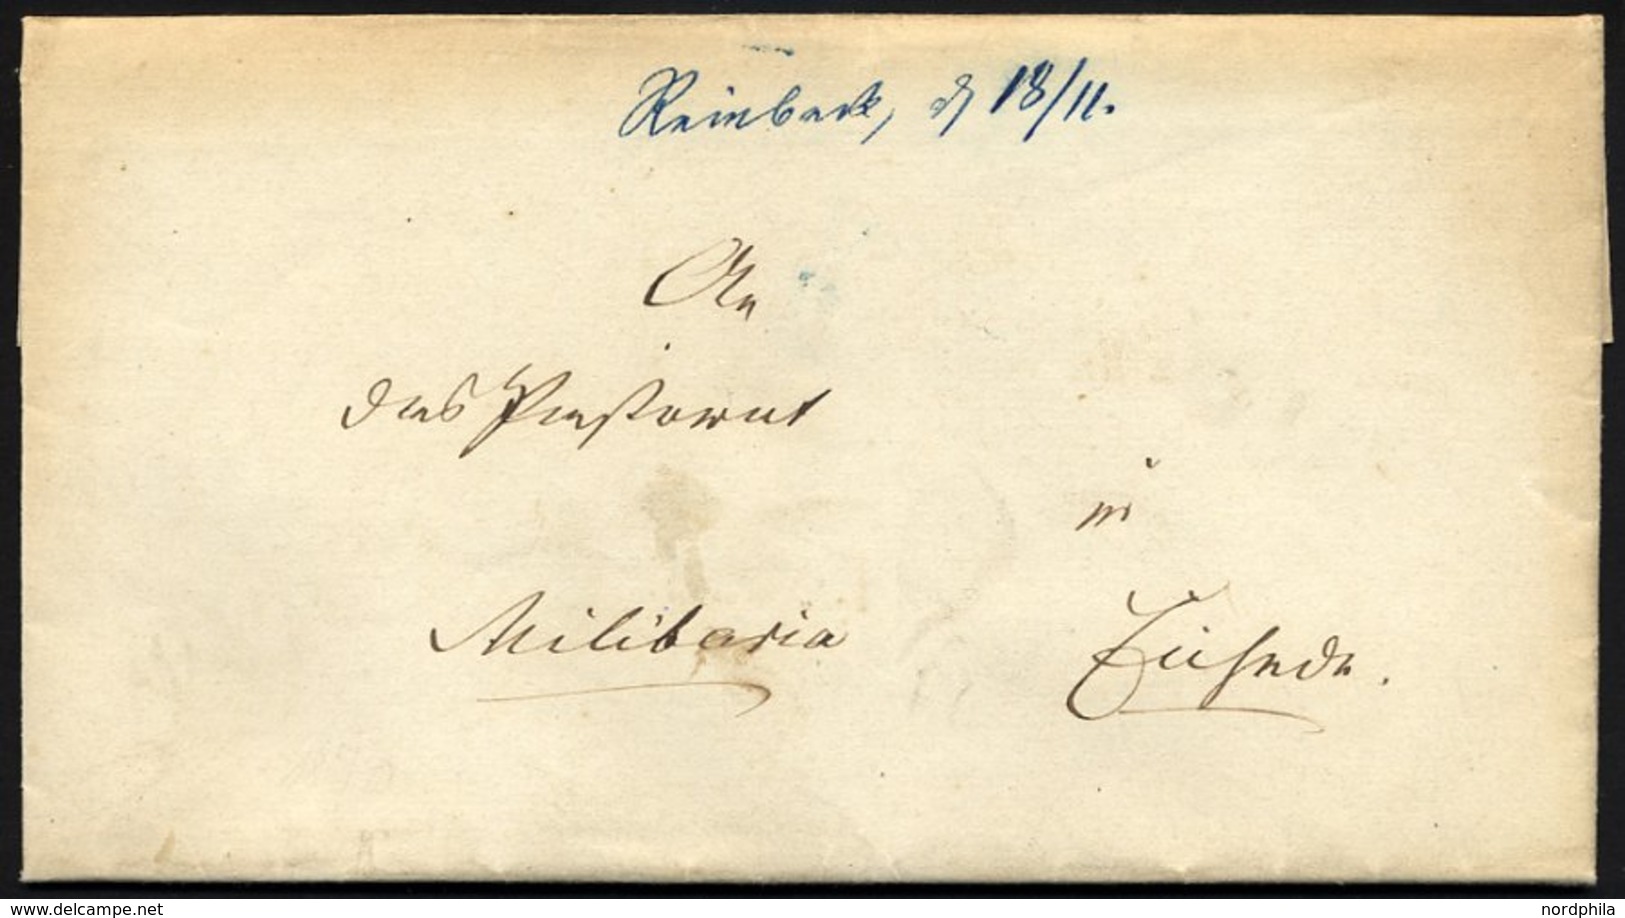 Reinbeck, d 18/11.
An
das Pastorat
in
Militaria
Eichede.
www.delcampe.net
nordphila